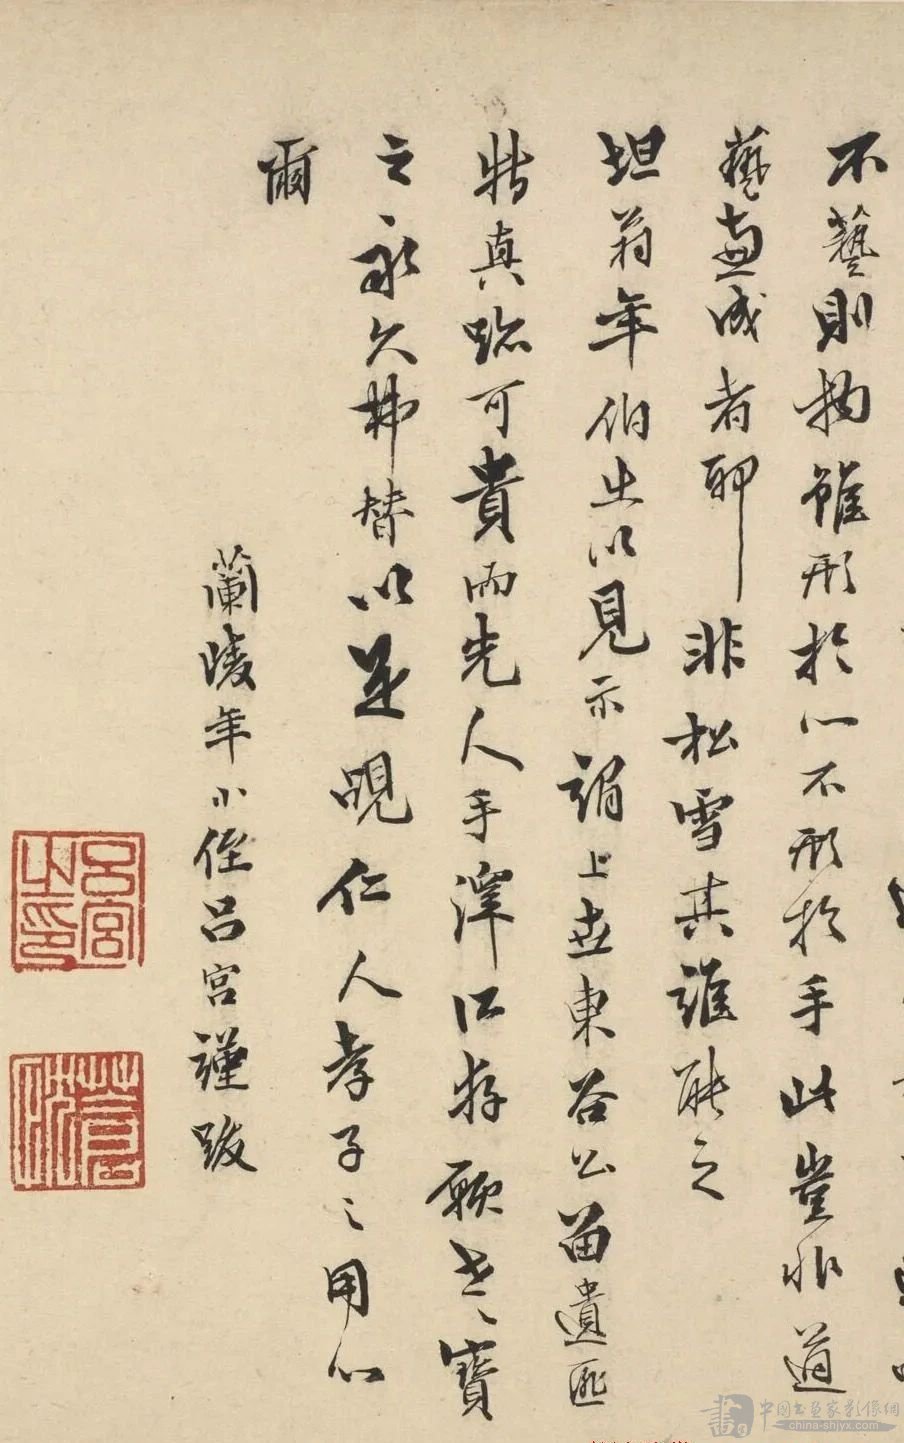 不藝則物雖形於心不形於手此豈非道
藝兼成者耶非松雪其誰能之
坦翁年伯出以見示謂上世東谷公留遺匪
特真跡可貴而先人手澤所存願世〻寶
之永久弗替以是覘仁人孝子之用心
爾
蘭陵年小侄呂宮謹跋
呂宮之印
中国书画家影像網
china-shjyx.com